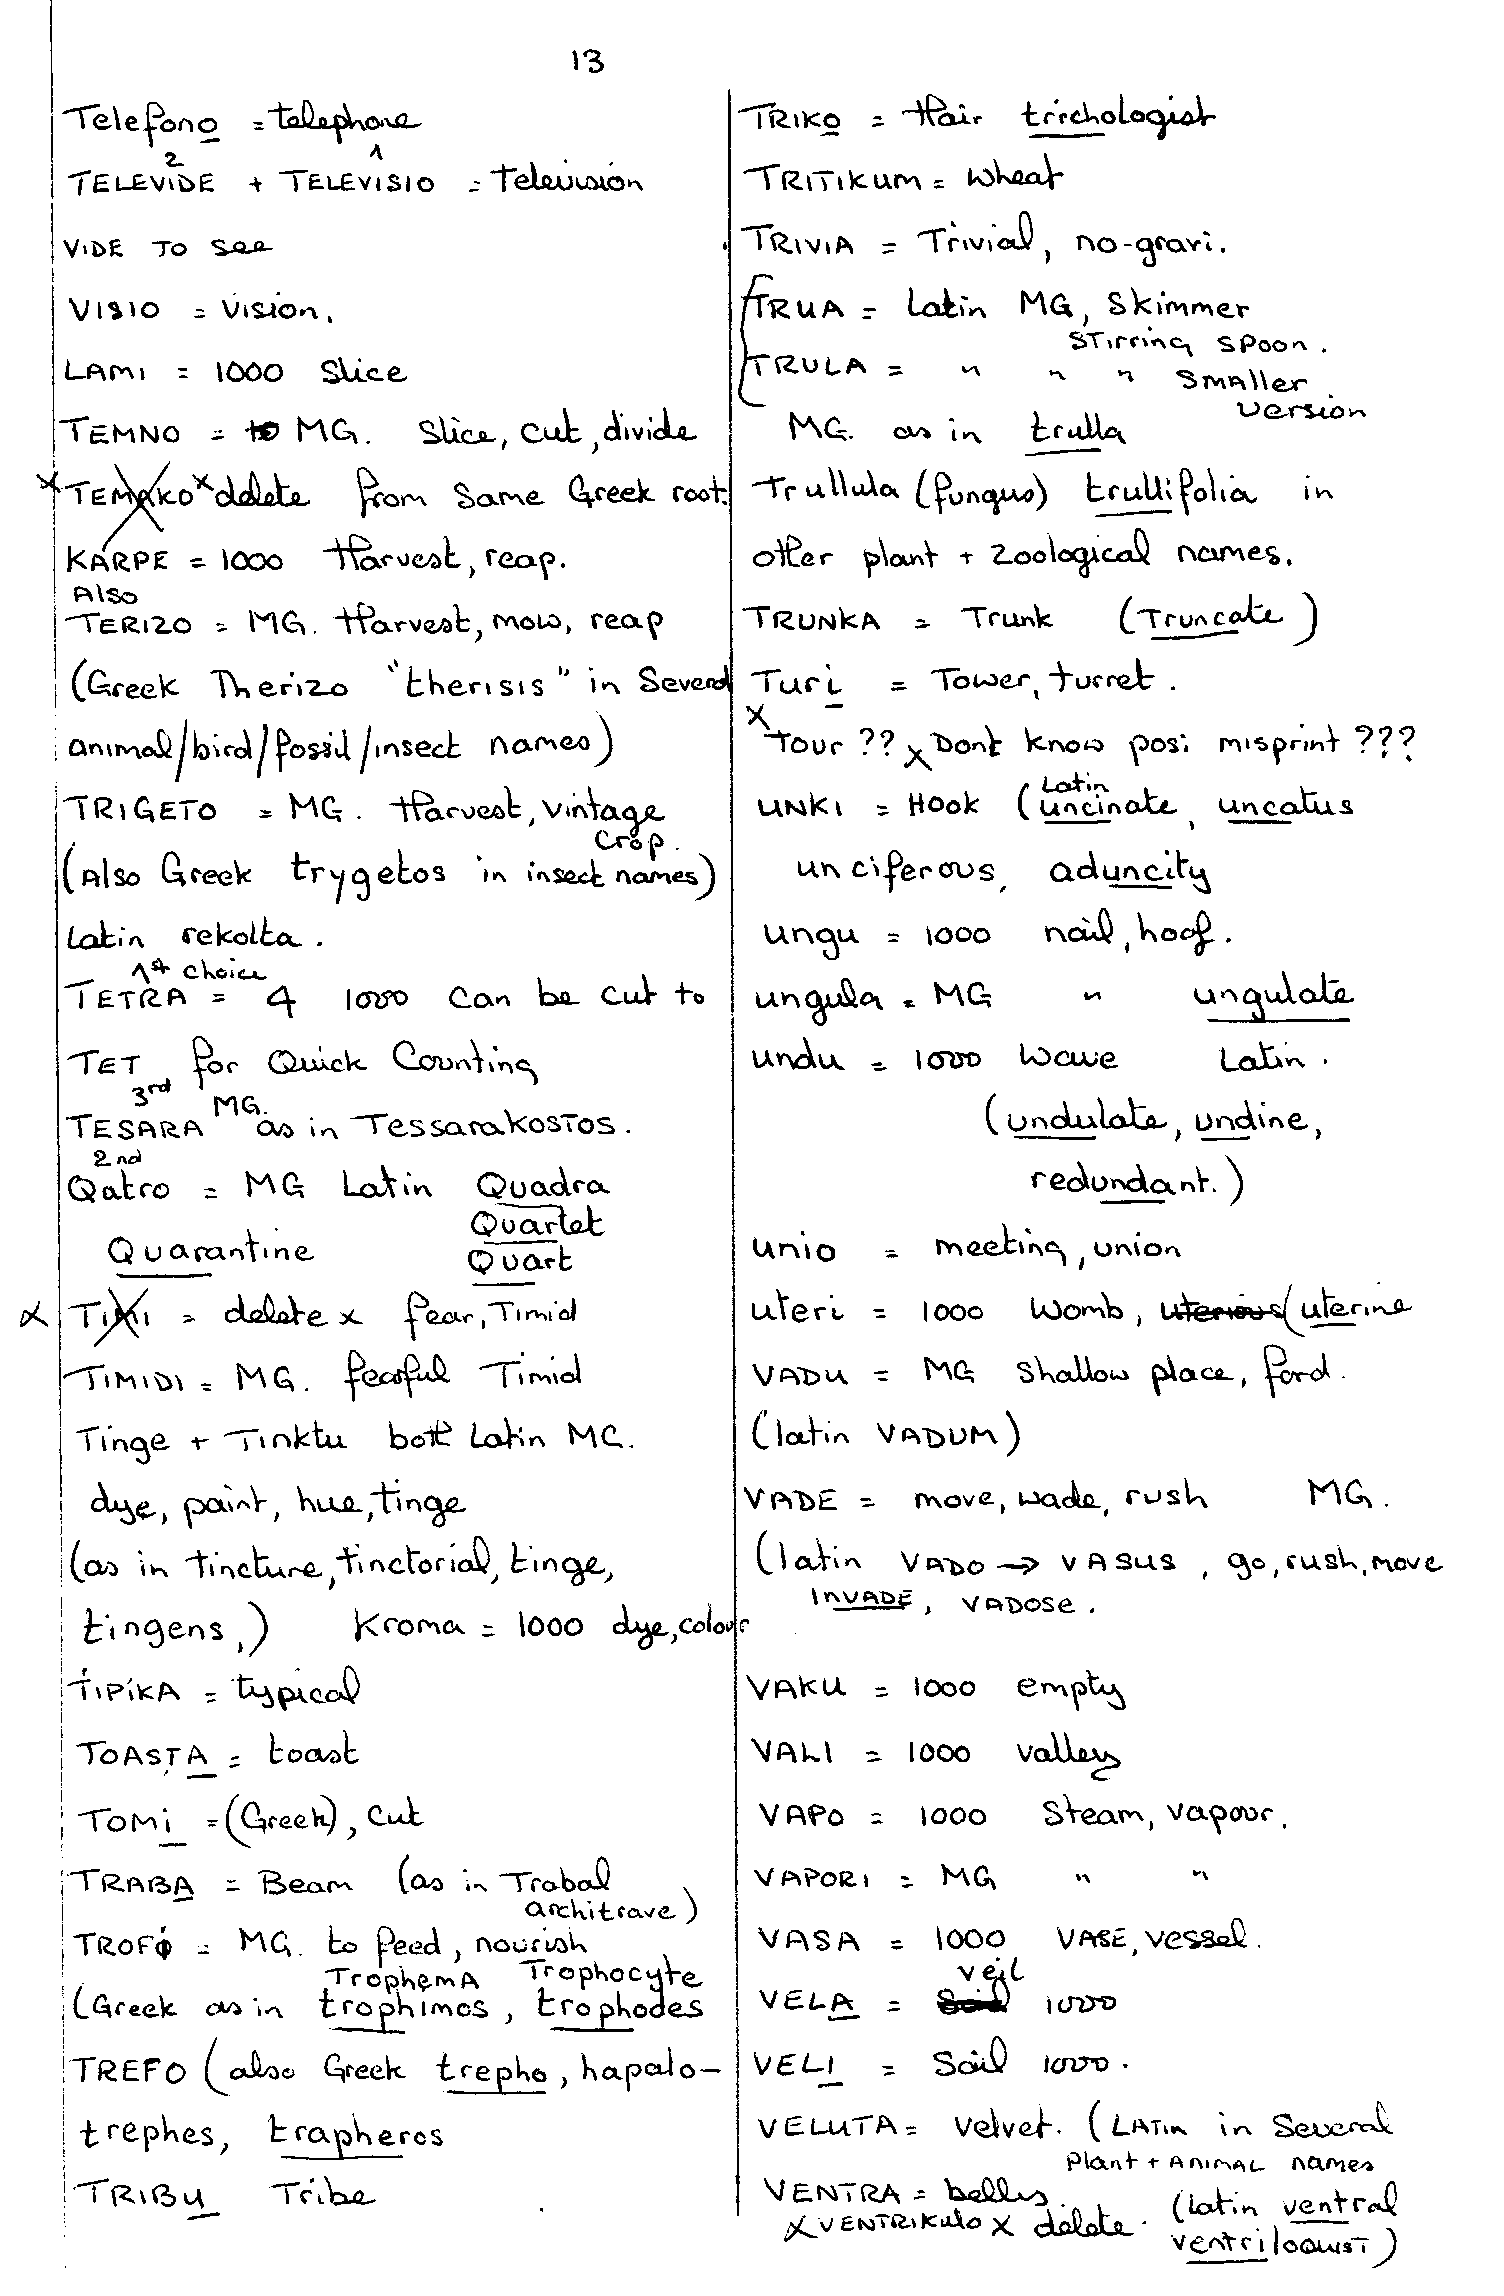 13
Telefono = telephone
2 1
TELEVIDE + TELEVISIO = Television
VIDE TO see
VISIO = Vision.
LAMI = 1000 Slice
TEMNO = to MG. Slice, cut, divide
x TEMAKO x delete from Same Greek root.
KARPE = 1000 Harvest, reap.
Also
TERIZO = MG. Harvest, mow, reap
(Greek Therizo "therisis" in Several
animal/bird/fossil/insect names)
TRIGETO = MG. Harvest, Vintage
Crop.
(Also Greek trygetos in insect names)
Latin rekolta.
1st choice
TETRA = 4 1000 Can be cut to
TET for Quick Counting
3rd MG.
TESARA as in TessarakosTos.
2nd
Qatro = MG Latin Quadra
Quartet
Quarantine Quart
x TIMI = delete x fear, Timid
TIMIDI = MG. fearful Timid
Tinge + Tinktu both Latin MG.
dye, paint, hue, tinge
(as in tincture, tinctorial, tinge,
tingens,) Kroma = 1000 dye, colour
TIPIKA = typical
TOASTA = toast
TOMi = (Greek), cut
TRABA = Beam (as in Trabal
architrave)
TROFO = MG. to feed, nourish
TrophemA Trophocyte
(Greek as in trophimos, trophodes
TREFO (also Greek trepho, hapalo-
trephes, trapheros
TRIBU Tribe
TRIKO = Hair trichologist
TRITIKUM = Wheat
TRIVIA = Trivial, no-gravi.
TRUA = Latin MG, Skimmer
STirring spoon.
TRULA = " " " Smaller
version
MG. as in trulla
Trullula (fungus) trullifolia in
other plant + Zoological names.
TRUNKA = Trunk (Truncate)
Turi = Tower, turret.
x Tour ?? x Dont know posi misprint ???
Latin
UNKI = Hook (uncinate, uncatus
unciferous, aduncity
ungu = 1000 nail, hoof.
ungula = MG " ungulate
undu = 1000 Wave Latin.
(undulate, undine,
redundant.)
unio = meeting, union
uteri = 1000 Womb, uterious (uterine
VADU = MG Shallow place, ford.
(latin VADUM)
VADE = move, wade, rush MG.
(latin VADO → VASUS, go, rush, move
INVADE, VADOSE.
VAKU = 1000 empty
VALI = 1000 valley
VAPO = 1000 Steam, vapour.
VAPORI = MG " "
VASA = 1000 VASE, vessel.
veil
VELA = Sail 1000
VELI = Sail 1000.
VELUTA = Velvet. (LATin in Several
plant + ANIMAL names
VENTRA = belly.
(Latin ventral
x VENTRIKULO x delete.
ventriloquist)